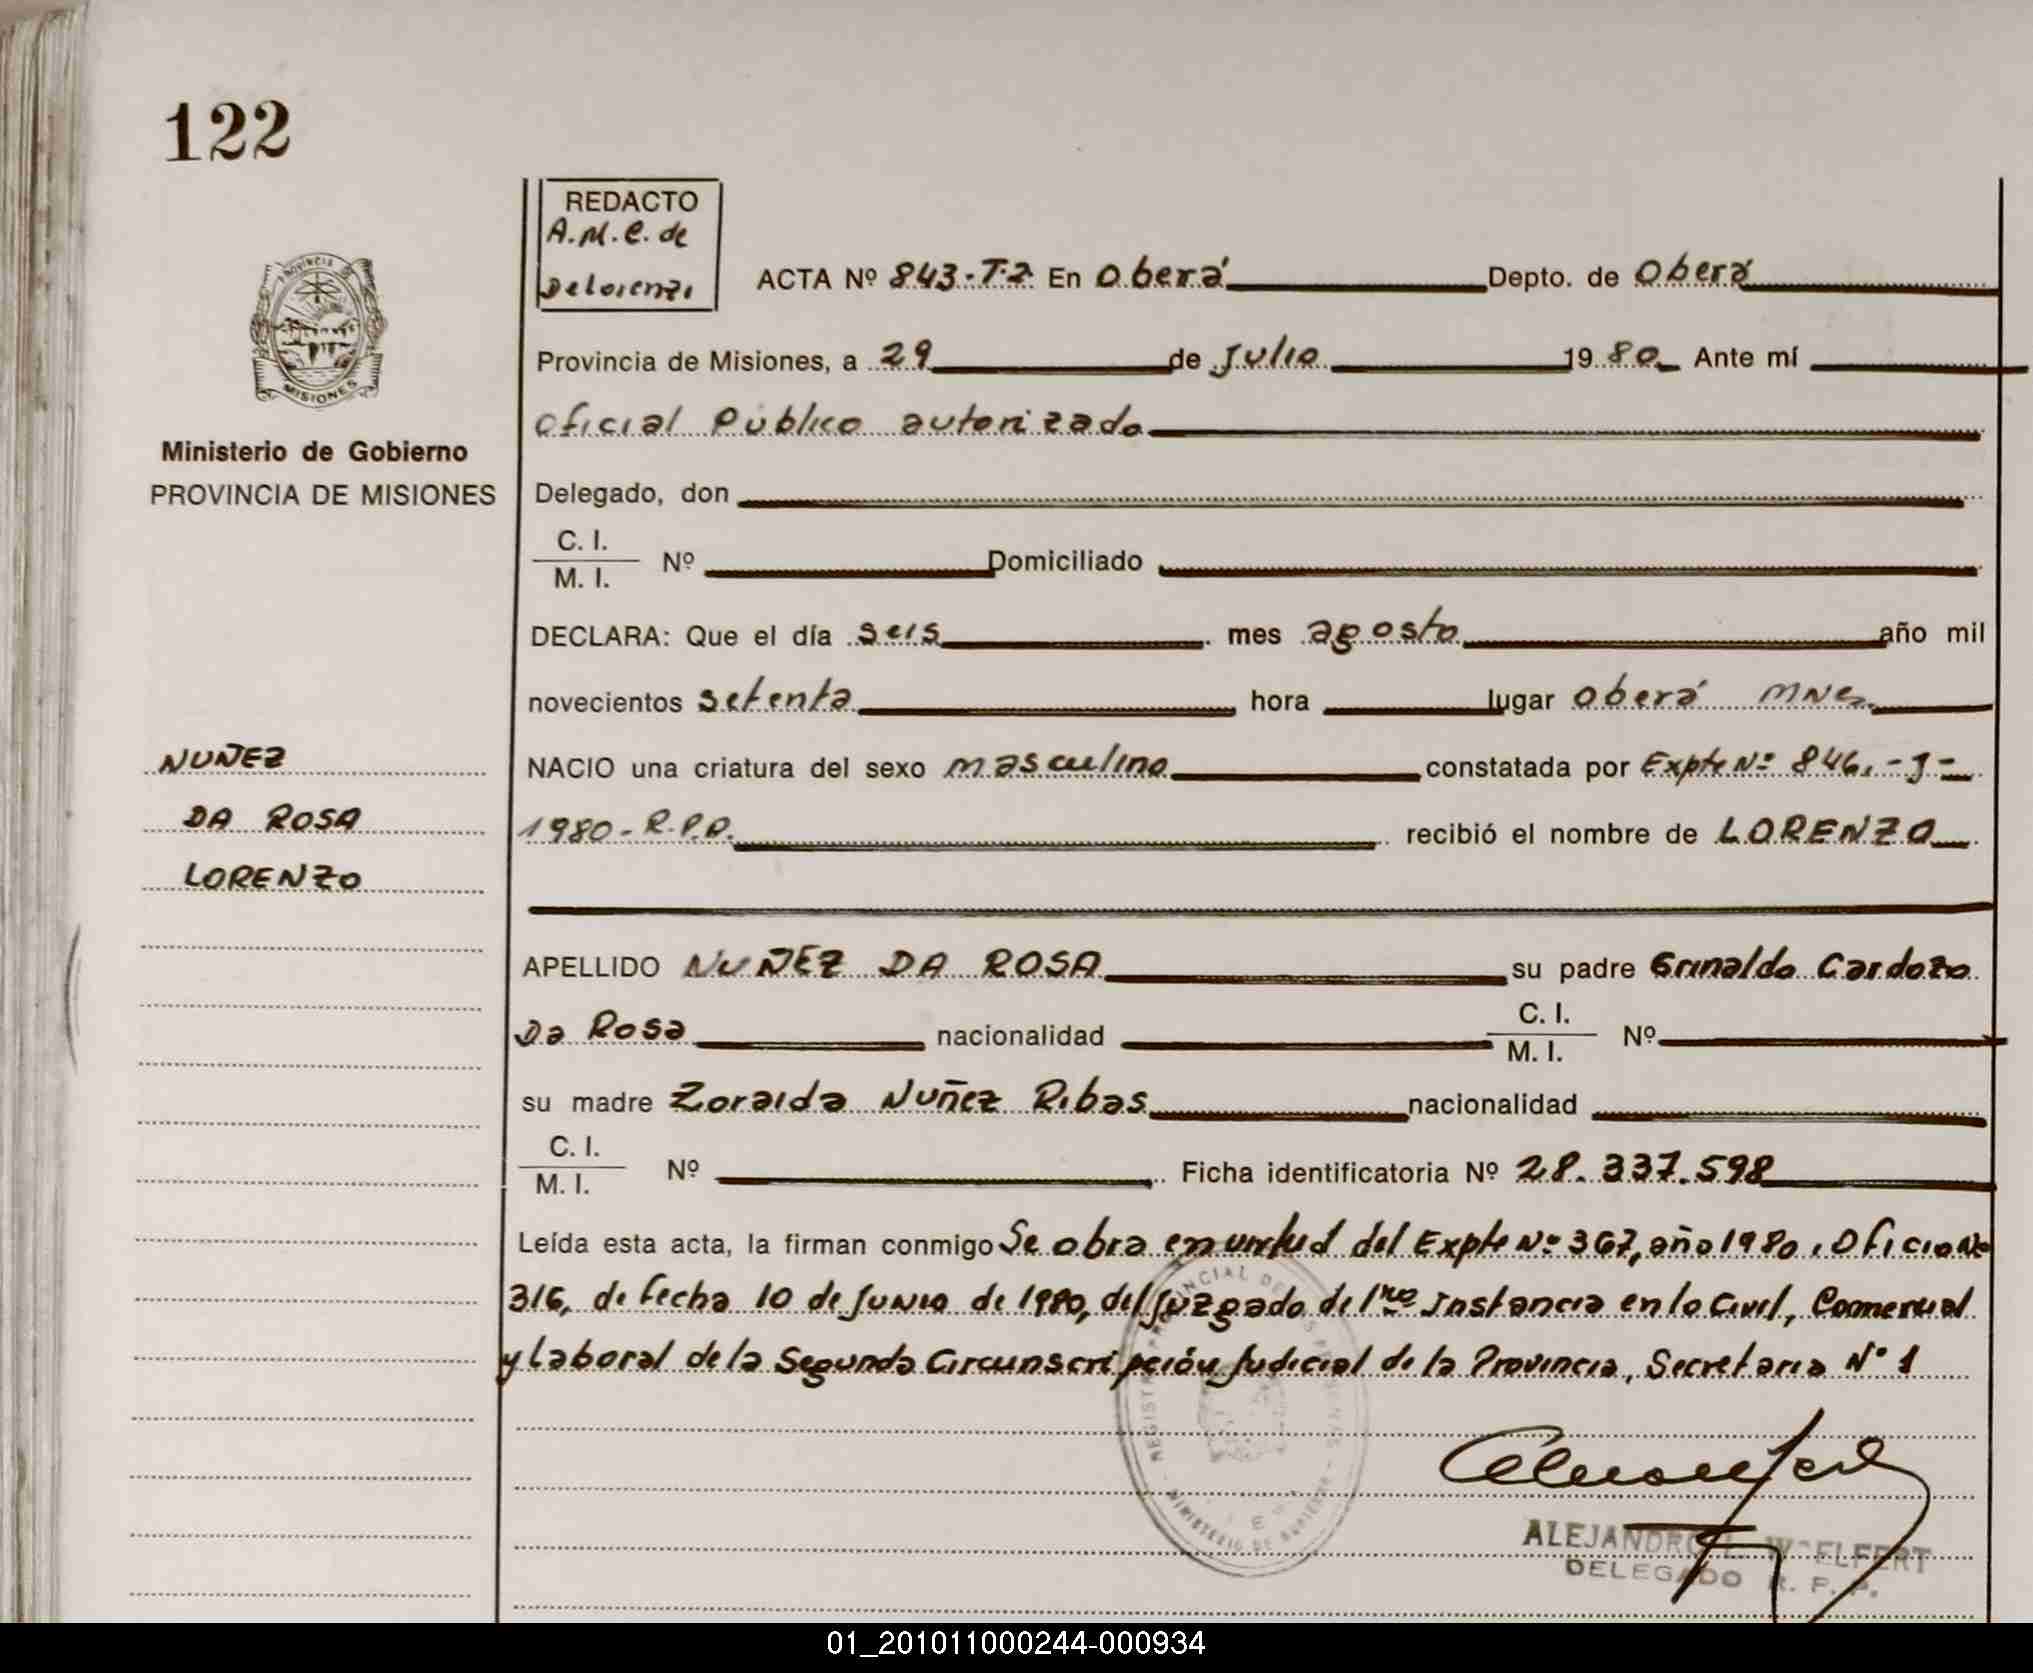 122
REDACTO
A.M.C. de
Delorenzi
ACTA Nº 843-T.2. En Oberá Depto. de Oberá
PROVINCIA DE
MISIONES
Provincia de Misiones, a 29 de Julio 1980 Ante mí
Oficial Público autorizado
Ministerio de Gobierno
PROVINCIA DE MISIONES
Delegado, don
C. I.
M. I.
Nº Domiciliado
DECLARA: Que el día seis mes agosto año mil
novecientos setenta hora lugar Oberá Mnes.
NUÑEZ
DA ROSA
LORENZO
NACIO una criatura del sexo masculino constatada por Expte Nº 846.-J-
1980-R.P.P. recibió el nombre de LORENZO
APELLIDO NUÑEZ DA ROSA su padre Grinaldo Cardozo
Da Rosa nacionalidad C. I.
M. I. Nº
su madre Zoraida Nuñez Ribas nacionalidad
C. I.
M. I. Nº Ficha identificatoria Nº 28.337.598
Leída esta acta, la firman conmigo Se obra en virtud del Expte Nº 367, año 1980, Oficio Nº
316, de fecha 10 de Junio de 1980, del Juzgado de 1ra Instancia en lo Civil, Comercial
y laboral de la Segunda Circunscripción Judicial de la Provincia, Secretaria Nº 1
MINISTERIO DE GOBIERNO
ALEJANDRO L. WOELFERT
DELEGADO R. P. P.
01_201011000244-000934